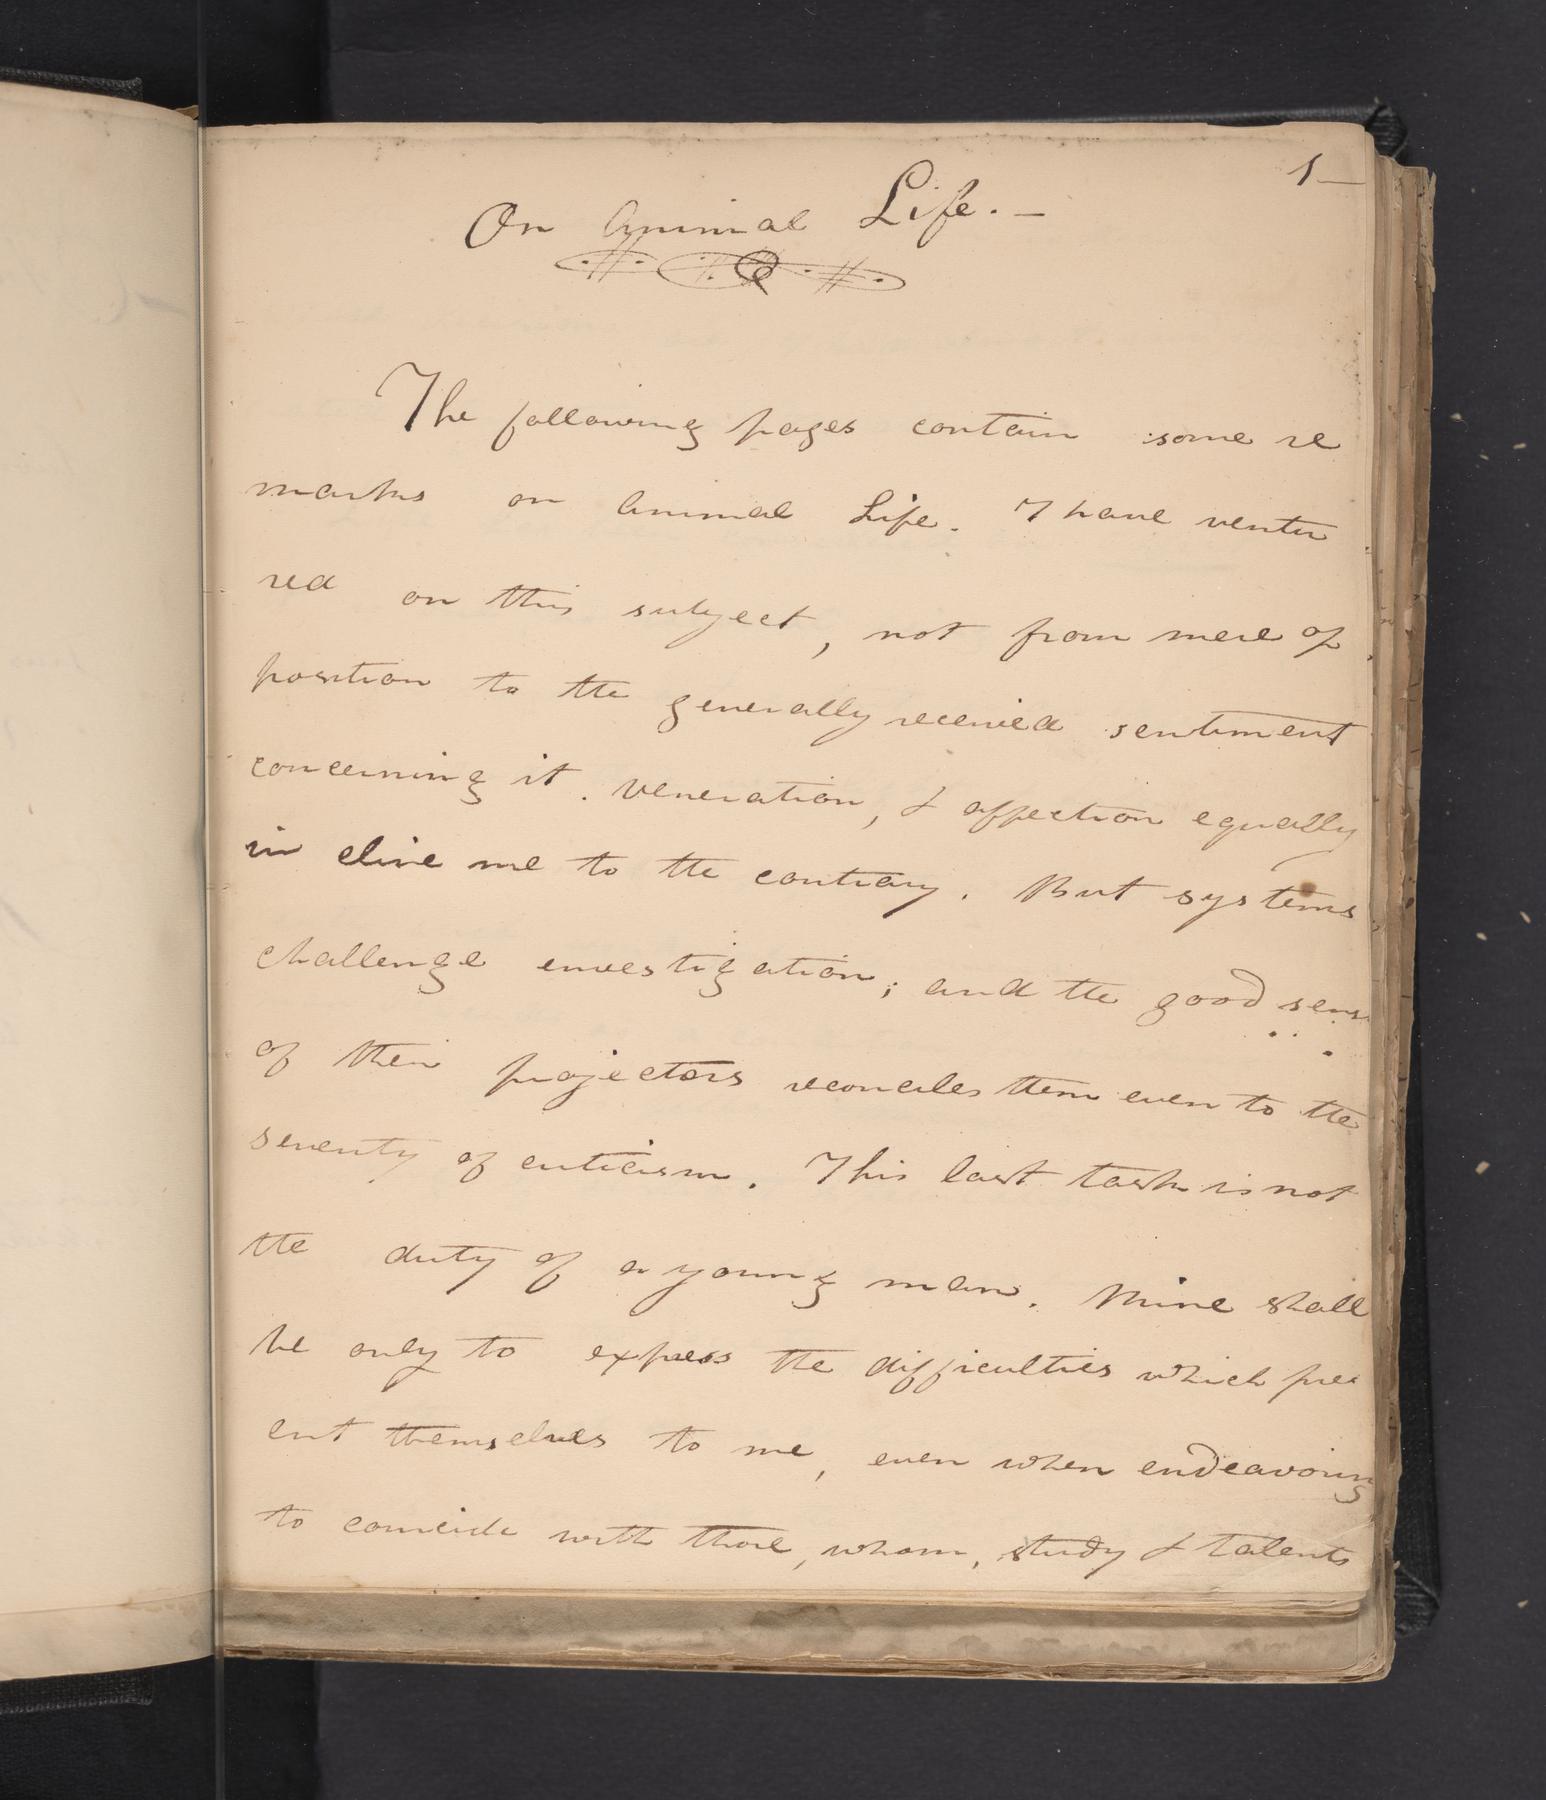 1—
On Animal Life. —
The following pages contain some re
marks on Animal Life. I have ventu
red on this subject, not from mere op
position to the generally received sentiment
concerning it. Veneration, & affection equally
in cline me to the contrary. But systems
challenge envestigation; and the good sense
of their projectors reconciles them even to the
severity of criticism. This last task is not
the duty of a young man. Mine shall
be only to express the difficulties which pres
ent themselves to me, even when endeavoring
to coincide with those, whom, study & talents